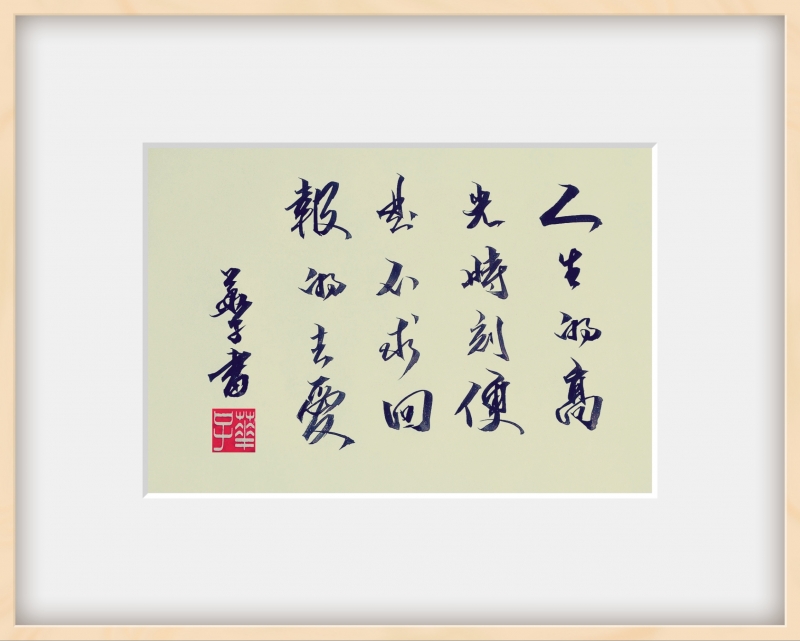 人生的高
光時刻便
是不求回
報的去愛
華子書
華子